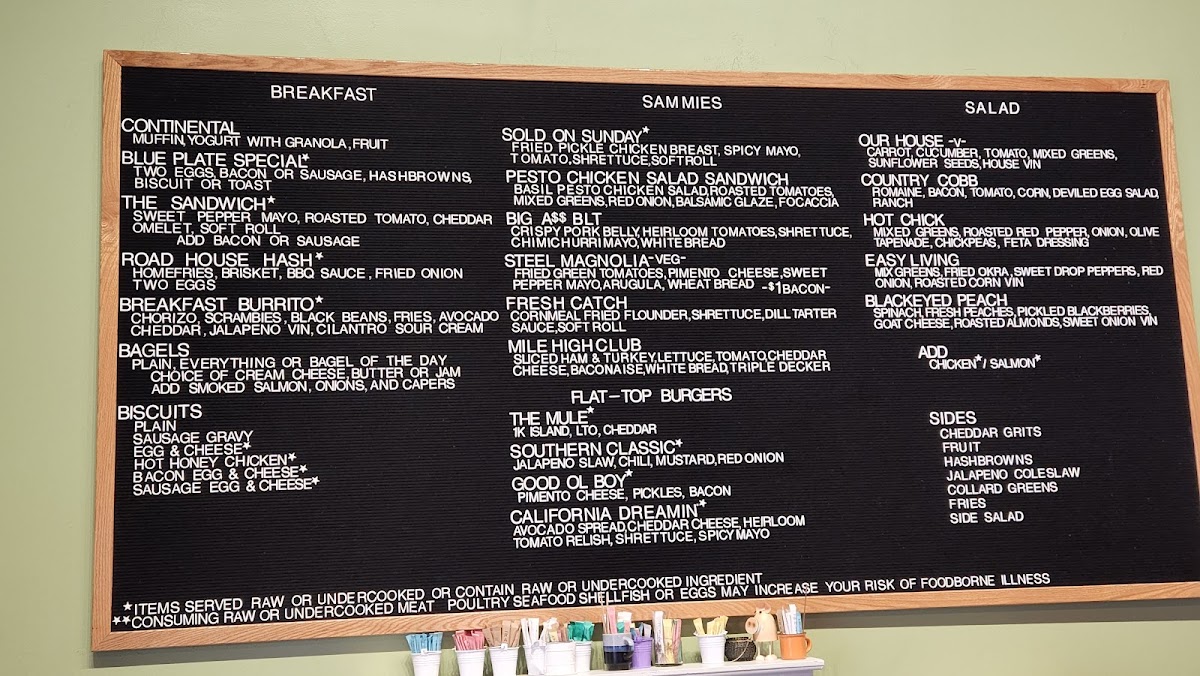 BREAKFAST
CONTINENTAL
MUFFIN, YOGURT WITH GRANOLA, FRUIT
BLUE PLATE SPECIAL*
TWO EGGS, BACON OR SAUSAGE, HASHBROWNS,
BISCUIT OR TOAST
THE SANDWICH*
SWEET PEPPER MAYO, ROASTED TOMATO, CHEDDAR
OMELET, SOFT ROLL
ADD BACON OR SAUSAGE
ROAD HOUSE HASH*
HOMEFRIES, BRISKET, BBQ SAUCE, FRIED ONION
TWO EGGS
BREAKFAST BURRITO*
CHORIZO, SCRAMBIES, BLACK BEANS, FRIES, AVOCADO
CHEDDAR, JALAPENO VIN, CILANTRO SOUR CREAM
BAGELS
PLAIN, EVERYTHING OR BAGEL OF THE DAY
CHOICE OF CREAM CHEESE, BUTTER OR JAM
ADD SMOKED SALMON, ONIONS, AND CAPERS
BISCUITS
PLAIN
SAUSAGE GRAVY
EGG & CHEESE*
HOT HONEY CHICKEN*
BACON EGG & CHEESE*
SAUSAGE EGG & CHEESE*
SAMMIES
SOLD ON SUNDAY*
FRIED PICKLE CHICKEN BREAST, SPICY MAYO,
TOMATO, SHRETTUCE, SOFT ROLL
PESTO CHICKEN SALAD SANDWICH
BASIL PESTO CHICKEN SALAD, ROASTED TOMATOES,
MIXED GREENS, RED ONION, BALSAMIC GLAZE, FOCACCIA
BIG A$$ BLT
CRISPY PORK BELLY, HEIRLOOM TOMATOES, SHRETTUCE,
CHIMICHURRI MAYO, WHITE BREAD
STEEL MAGNOLIA -VEG-
FRIED GREEN TOMATOES, PIMENTO CHEESE, SWEET
PEPPER MAYO, ARUGULA, WHEAT BREAD -$1 BACON-
FRESH CATCH
CORNMEAL FRIED FLOUNDER, SHRETTUCE, DILL TARTER
SAUCE, SOFT ROLL
MILE HIGH CLUB
SLICED HAM & TURKEY, LETTUCE, TOMATO, CHEDDAR
CHEESE, BACONAISE, WHITE BREAD, TRIPLE DECKER
FLAT-TOP BURGERS
THE MULE*
1K ISLAND, LTO, CHEDDAR
SOUTHERN CLASSIC*
JALAPENO SLAW, CHILI, MUSTARD, RED ONION
GOOD OL BOY*
PIMENTO CHEESE, PICKLES, BACON
CALIFORNIA DREAMIN*
AVOCADO SPREAD, CHEDDAR CHEESE, HEIRLOOM
TOMATO RELISH, SHRETTUCE, SPICY MAYO
SALAD
OUR HOUSE -V-
CARROT, CUCUMBER, TOMATO, MIXED GREENS,
SUNFLOWER SEEDS, HOUSE VIN
COUNTRY COBB
ROMAINE, BACON, TOMATO, CORN, DEVILED EGG SALAD,
RANCH
HOT CHICK
MIXED GREENS, ROASTED RED PEPPER, ONION, OLIVE
TAPENADE, CHICKPEAS, FETA DRESSING
EASY LIVING
MIX GREENS, FRIED OKRA, SWEET DROP PEPPERS, RED
ONION, ROASTED CORN VIN
BLACKEYED PEACH
SPINACH, FRESH PEACHES, PICKLED BLACKBERRIES,
GOAT CHEESE, ROASTED ALMONDS, SWEET ONION VIN
ADD
CHICKEN* / SALMON*
SIDES
CHEDDAR GRITS
FRUIT
HASHBROWNS
JALAPENO COLESLAW
COLLARD GREENS
FRIES
SIDE SALAD
*ITEMS SERVED RAW OR UNDERCOOKED OR CONTAIN RAW OR UNDERCOOKED INGREDIENT
**CONSUMING RAW OR UNDERCOOKED MEAT POULTRY SEAFOOD SHELLFISH OR EGGS MAY INCREASE YOUR RISK OF FOODBORNE ILLNESS